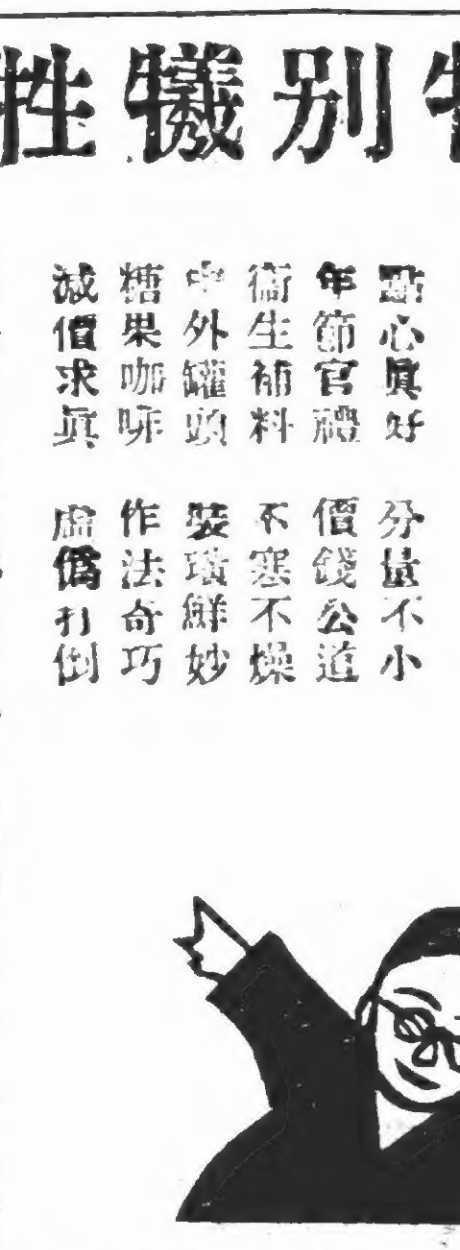 别犧牲
點心眞好 分量不小
年節官禮 價錢公道
衛生補料 不寒不燥
中外罐頭 裝璜鮮妙
糖果咖啡 作法奇巧
減價求眞 虛僞打倒